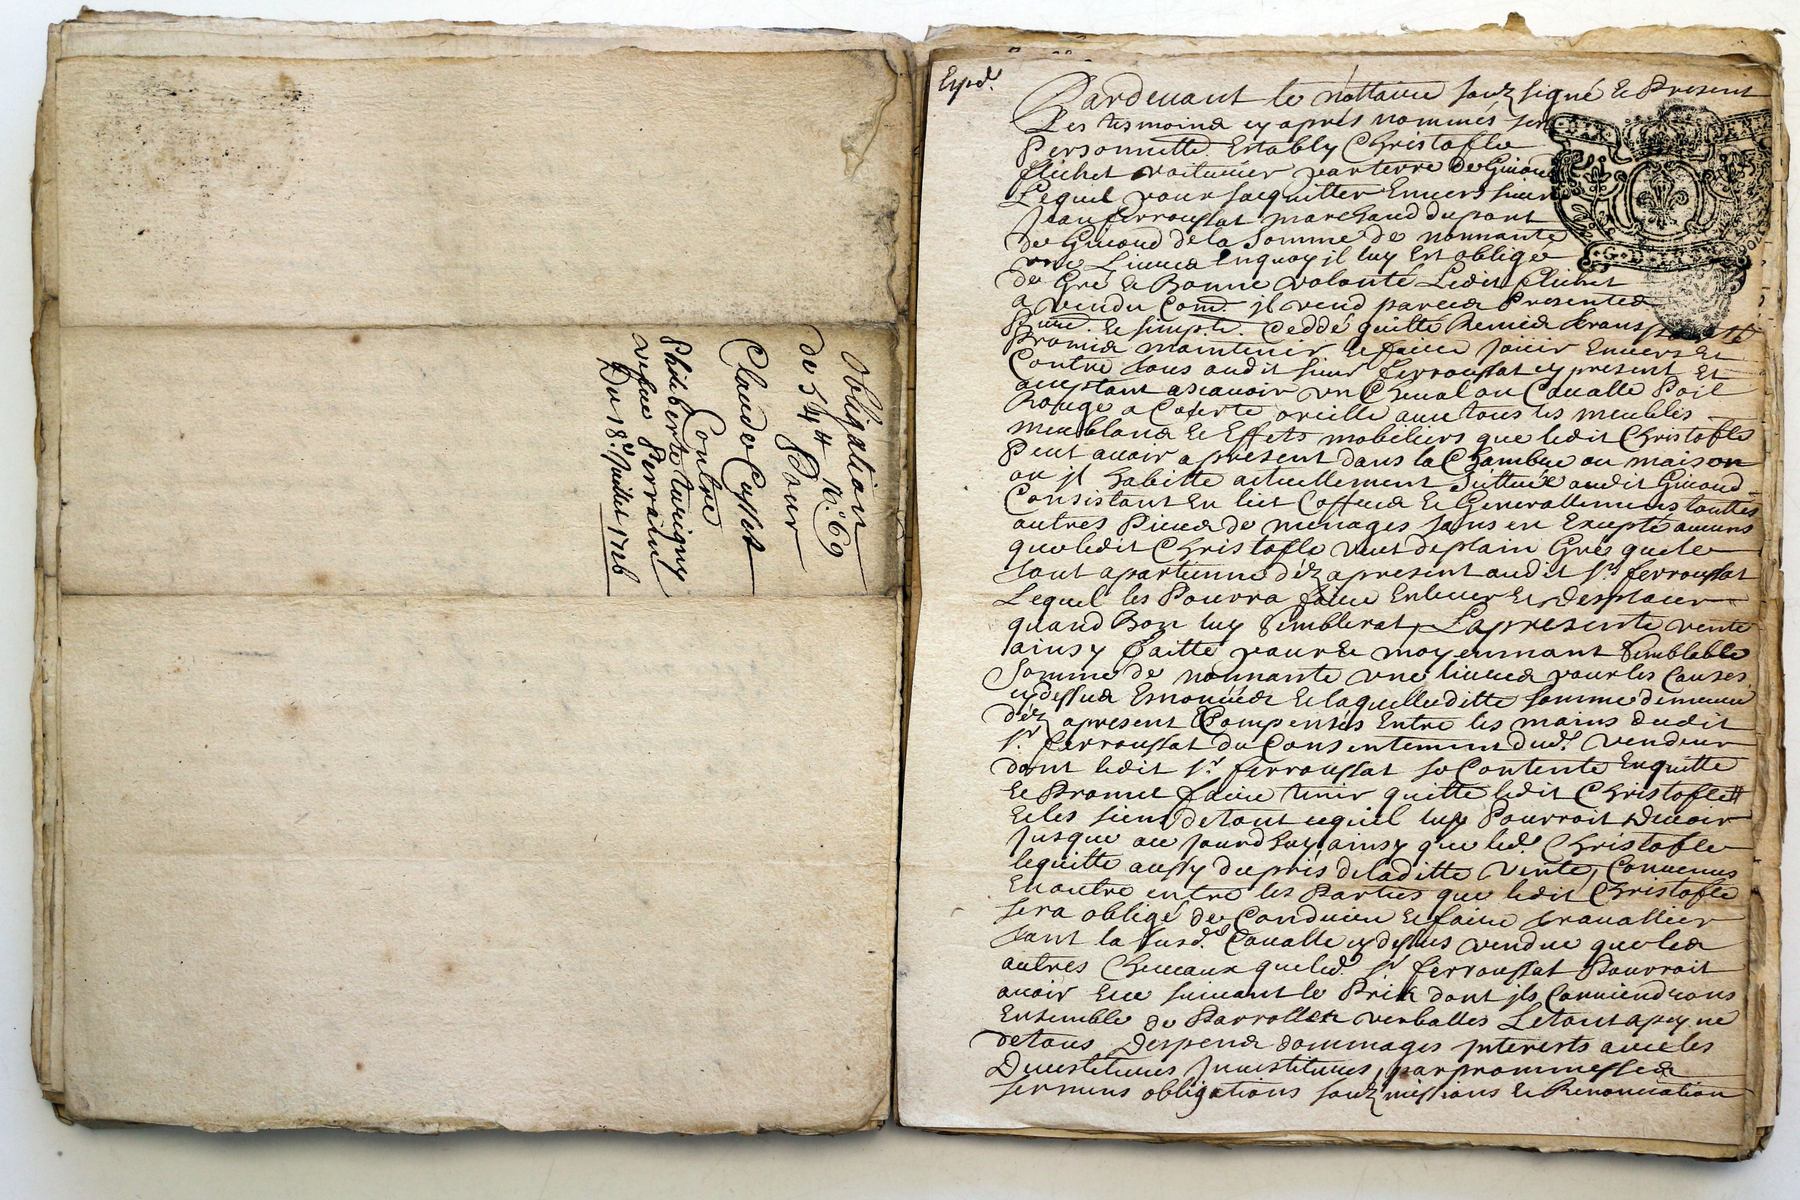 Obligation
de 54 ₶ n.° 69
Pour
Claude Cusset
Contre
Philiberte turrigny
vefue Perradin
Du 18.e Juillet 1726
Expd.
Pardeuant le nottaire souz signé Et Present
Les tesmoins cy apres nommés
Personnelle Establý Christofle
flichet voiturier par terre de Giuord
Lequel pour sacquitter Enuers sieur
Jean ferroussat marchand du pont
de Giuord de la Somme de nonnante
vne Liures Enquoy il luy Est obligé
de Gré Et Bonne volonté Ledit flichet
a vendu Com. il vend par ces Presentes
Pure. Et simple. Ceddé quitte Remis
Promis maintenir Et faire jouir Enuers Et
Contre tous audit sieur ferroussat cy present Et
aceptant ascauoir vn Cheual ou Caualle Poil
Rouge a Courte oreille auec tous les meubles
meublans Et Effets mobiliers que ledit Christofle
Peut auoir a present dans la Chambre ou maison
ou il habitte actuellement Scittuée audit Giuord
Consistant En lict Coffres Et Generallement touttes
autres Pieces de menages sans en Excepté aucuns
que ledit Christofle veut de plain Gres que le
tout apartienne déz apresent audit s.r ferroussat
Lequel les Pourra faire Enleuer Et desplacer
quand Bon luy Semblerat, La presente vente
ainsy faitte pour Et moyennant Semblable
Somme de nonnante vne liures pour les Causes
cy dessus Enoncées Et laquelle ditte somme demeure
déz apresent Compensés Entre les mains dudit
s.r ferroussat du Consentement dud. vendeur
dont ledit s.r ferroussat se Contente Enquitte
Et Promet faire tenir quitte ledit Christofle
Et les siens de tout ce quil luy Pourroit Deuoir
Jusque au jourdhuy, ainsy que led. Christofle
lequitte aussy du pris de laditte vente, Conuenus
En outre entre les Parties que ledit Christofle
sera obligé de Conduire Et faire trauallier
tant la susd. Caualle cy dessus vendue que les
autres Cheuaux que led. s.r ferroussat Pourroit
auoir Ece suiuant le Prix dont ils Conuiendrons
Ensemble de Parrolles verballes Le tout a peyne
de tous Despens dommages Interests auec les
Duestitures Inuestitures, par prommesses
sermens obligations souzmissions Et Renonciation